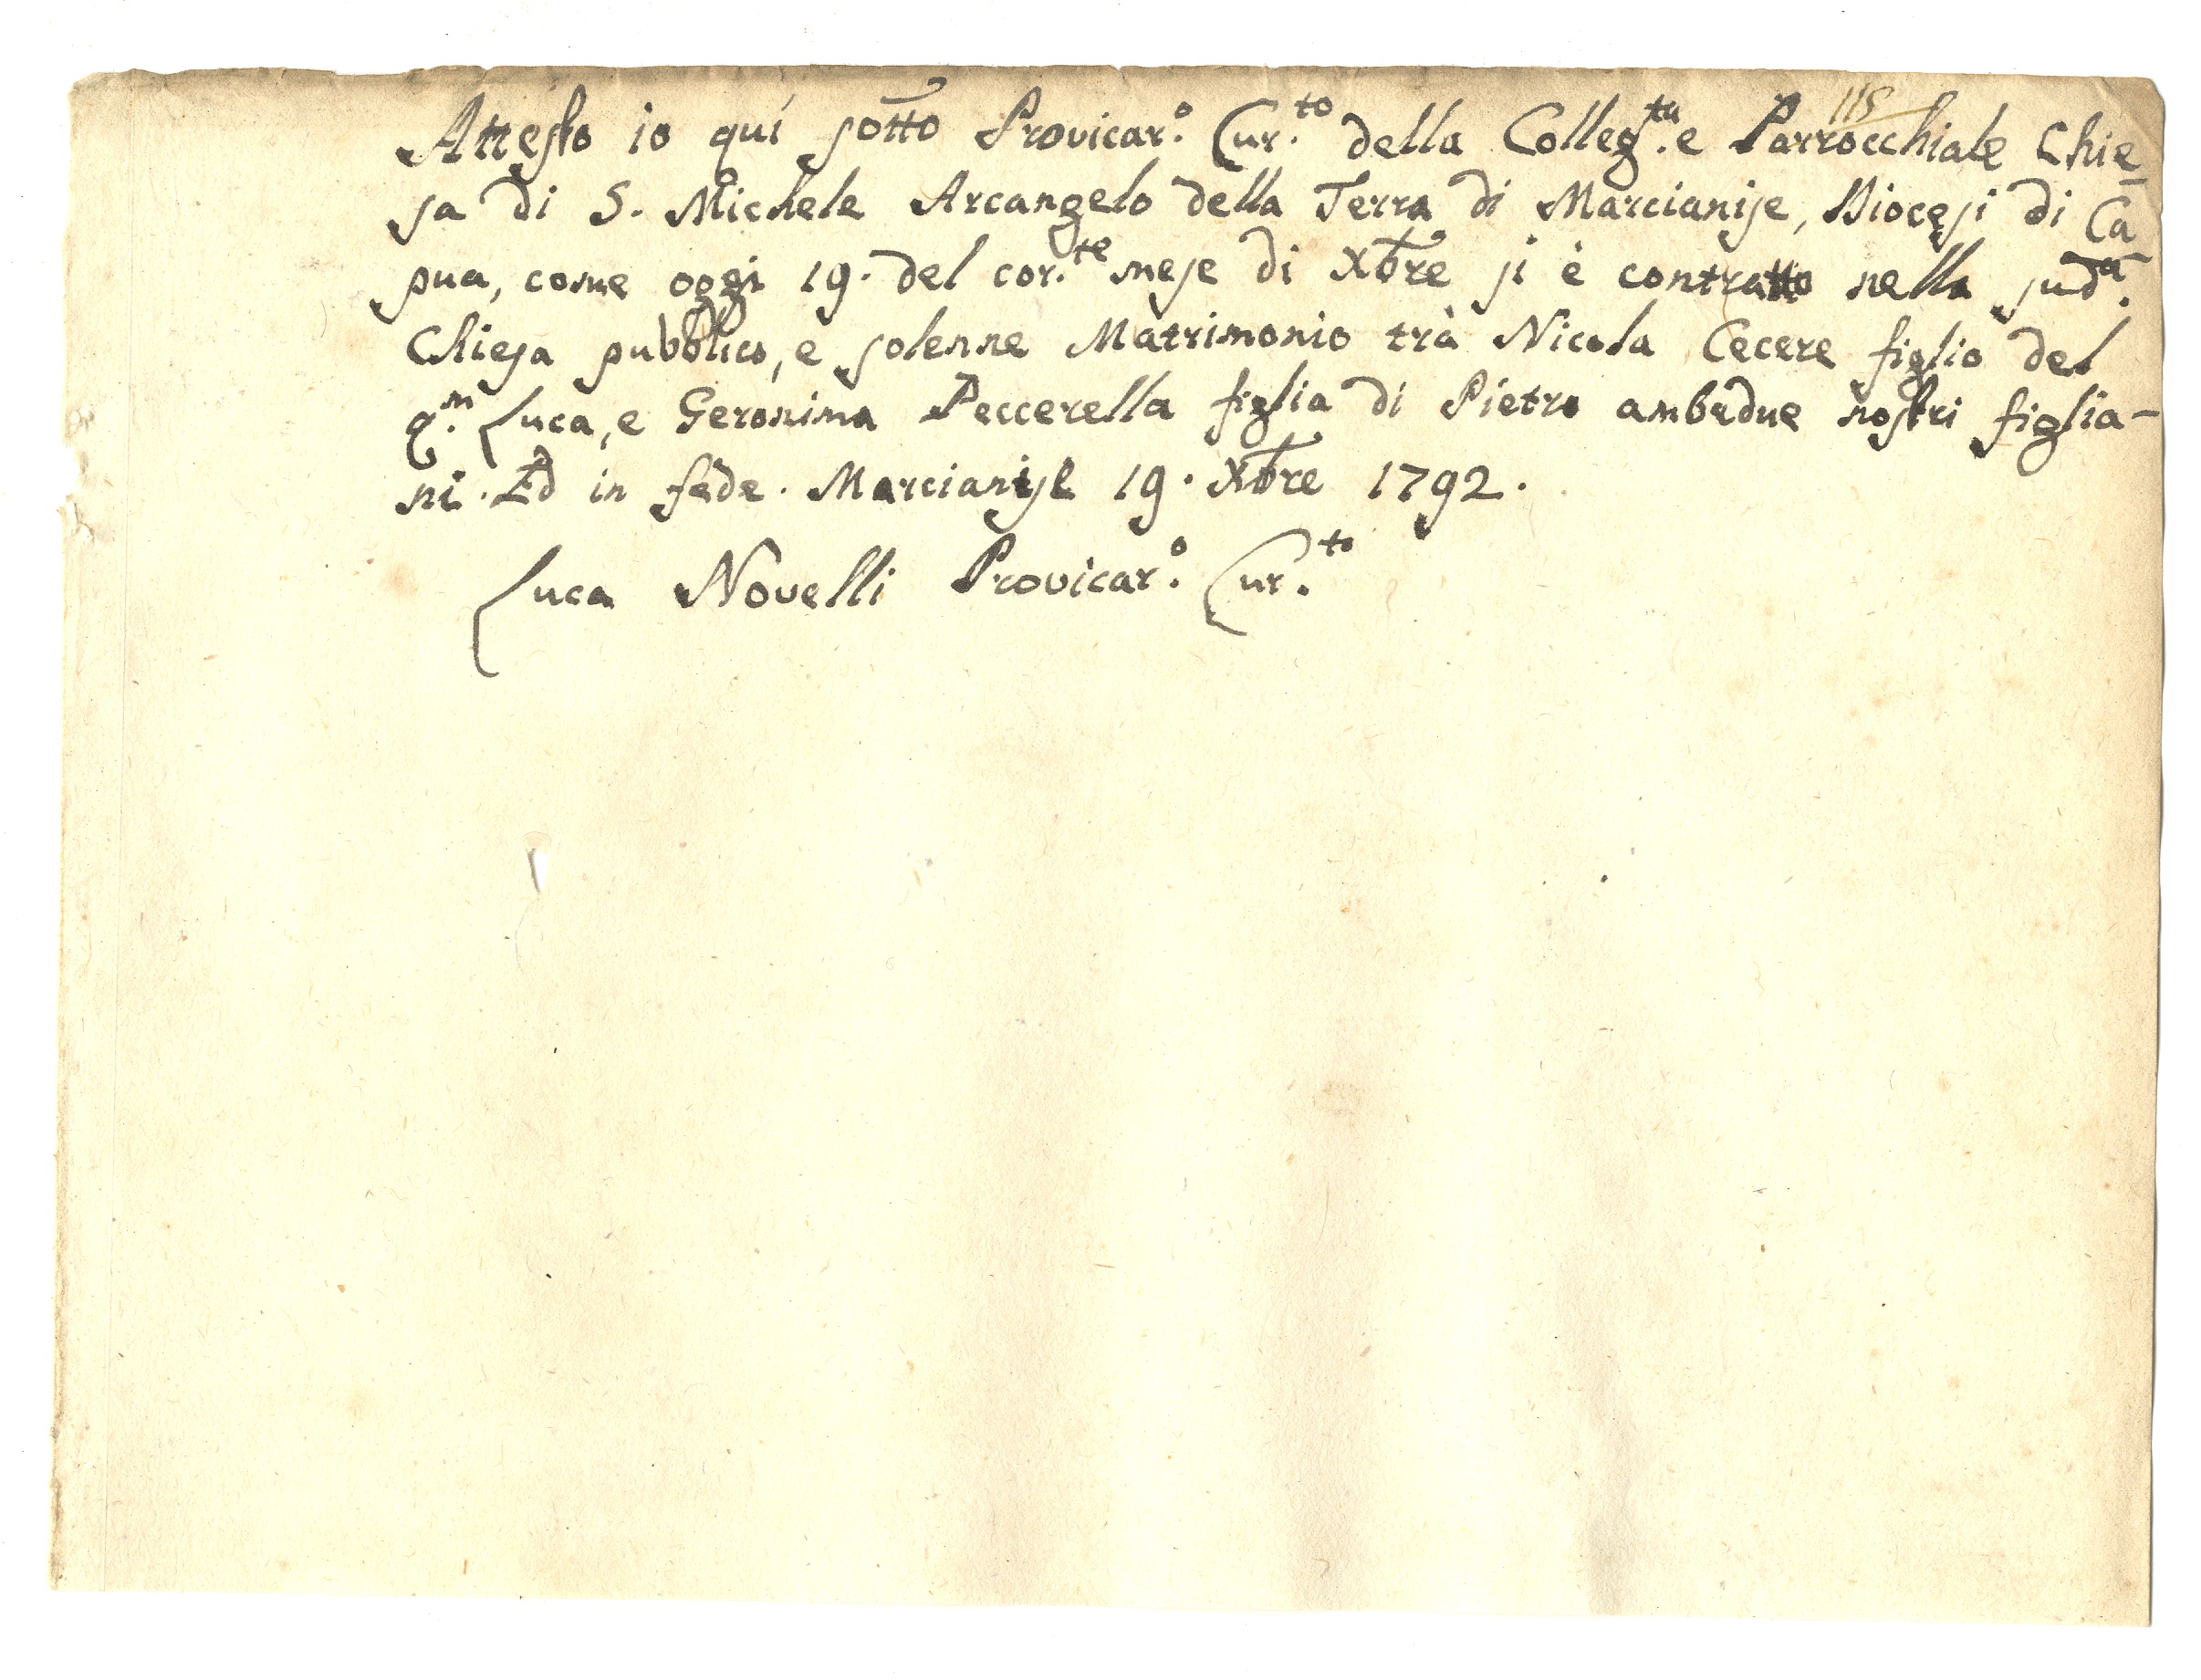 115
Attesto io quì sotto Provicar.º Cur.to della Colleg.ta e Parrocchiale Chie-
sa di S. Michele Arcangelo della Terra di Marcianise, Diocesi di Ca-
pua, come oggi 19. del cor.te mese di Xbre si è contratto nella sud.a
Chiesa pubblico, e solenne Matrimonio trà Nicola Cecere figlio del
q.m Luca, e Geronima Peccerella figlia di Pietro ambedue nostri figlia-
ni. Ed in fede. Marcianise 19. Xbre 1792.
Luca Novelli Provicar.º Cur.to